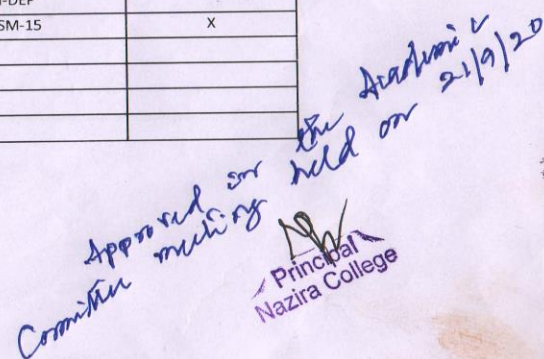 SM-15 X
Approved in the Academic
Committee meeting held on 21/9/20
Principal
Nazira College